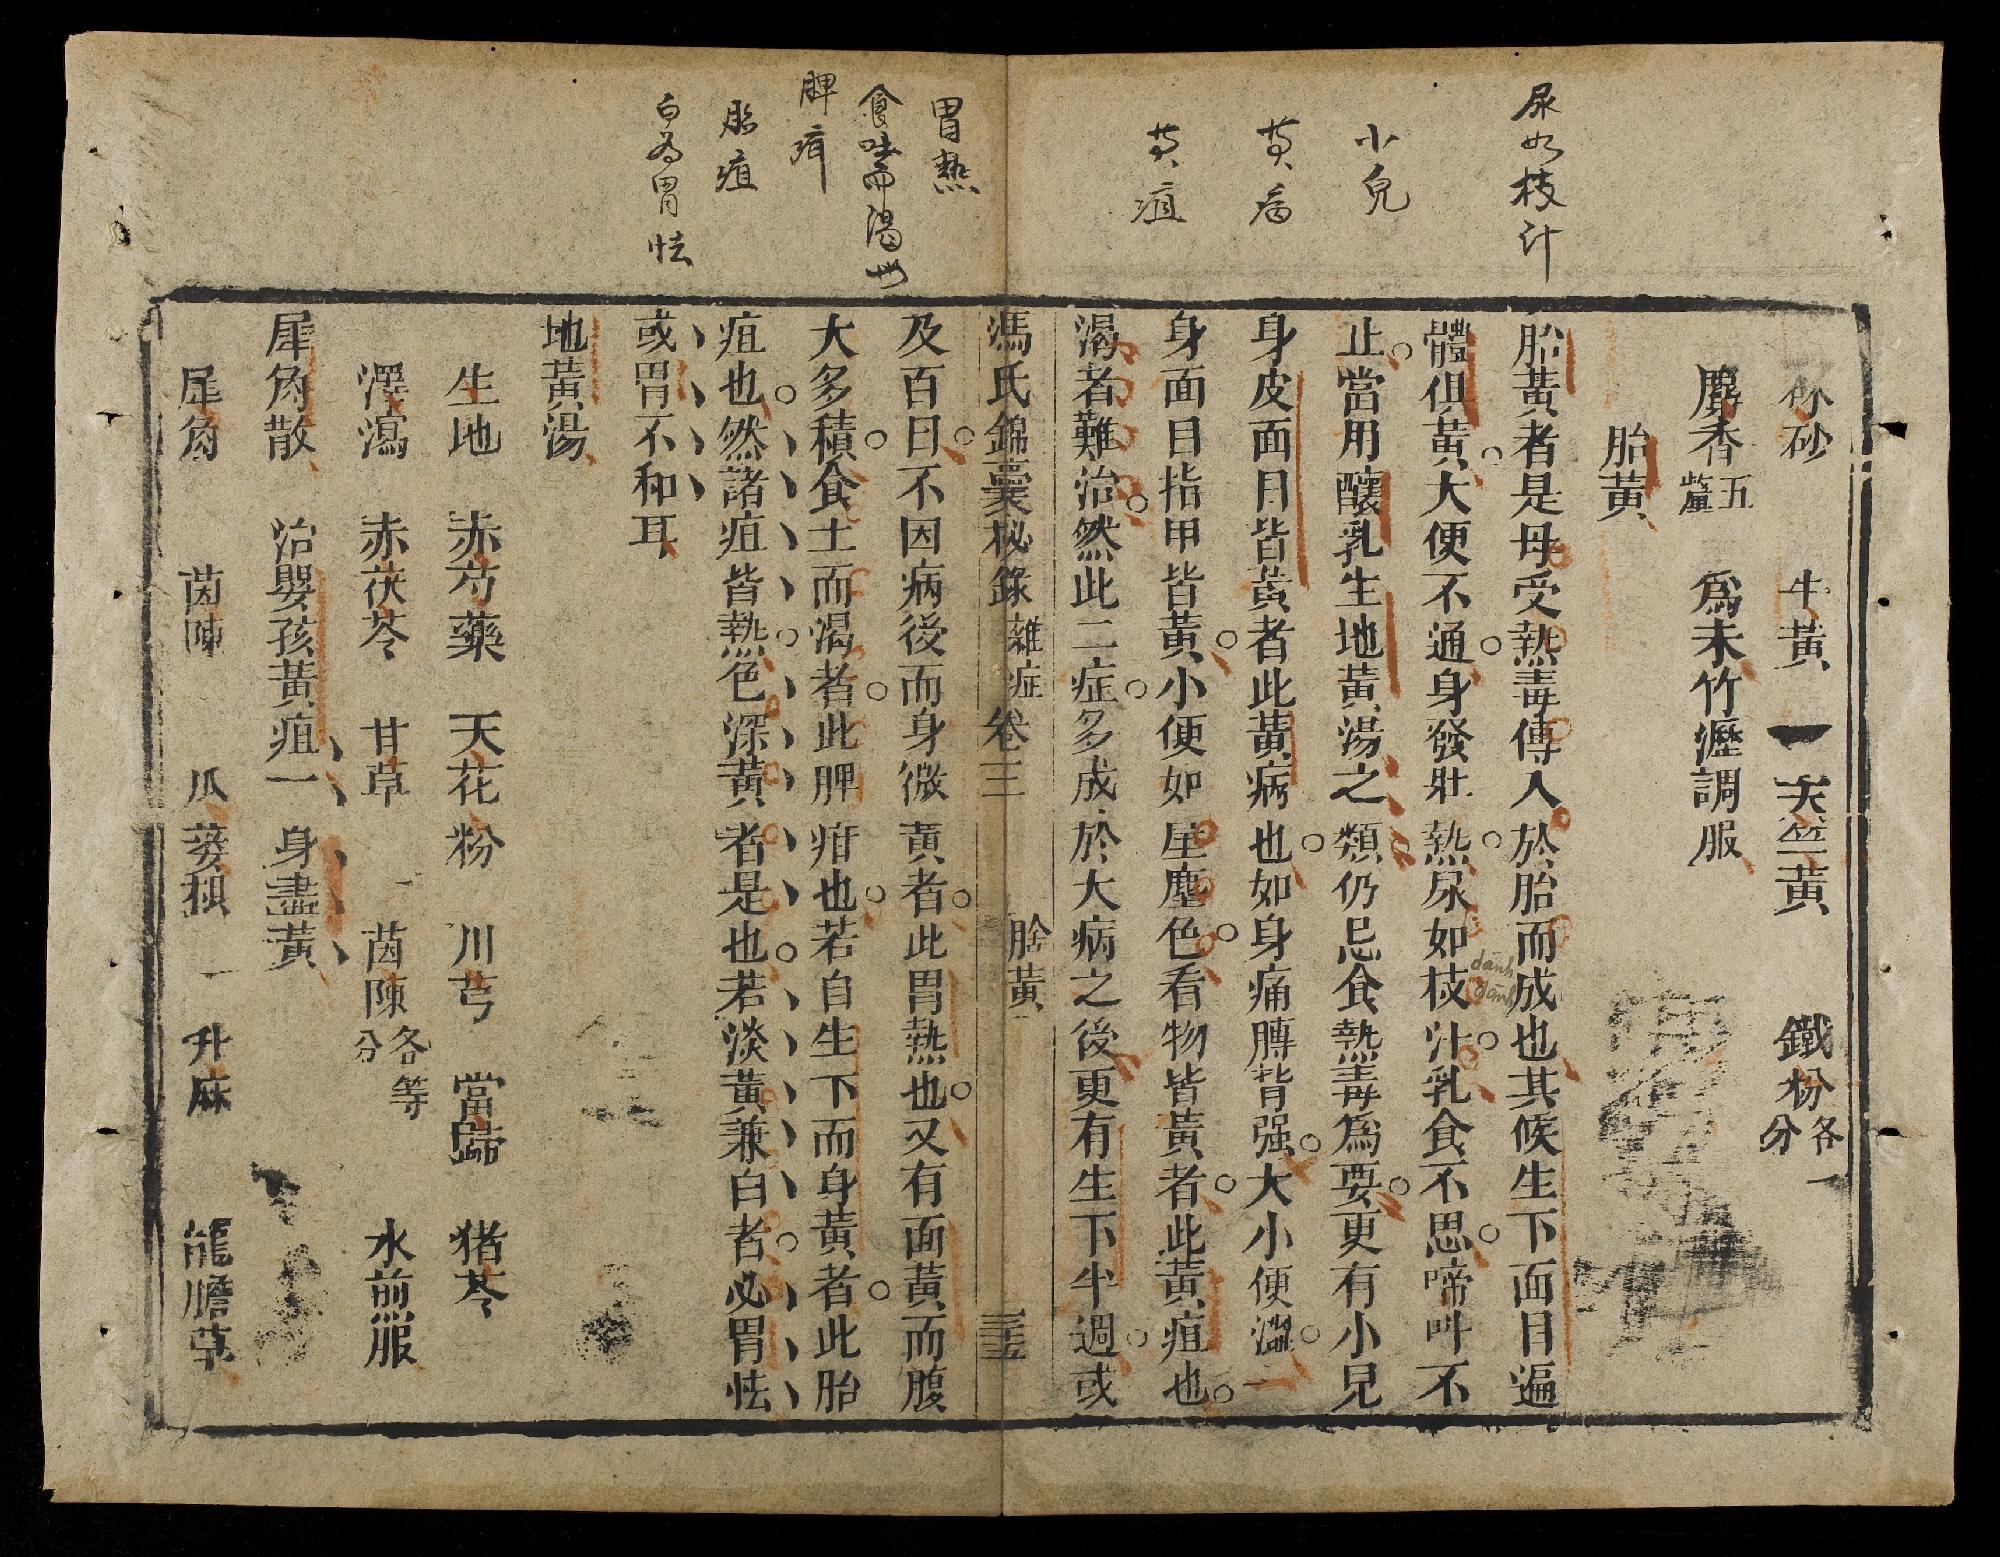 尿如枝汁
小兒
黄病
黄疸
胃熱
脾疳
胎疸
白为胃怯
砂 牛黃 天竺黃 鐵粉各一分
麝香五釐 爲末竹瀝調服
胎黃
胎黃者是母受熱毒傳入於胎而成也其候生下面目遍
體俱黃大便不通身發壯熱尿如枝汁乳食不思啼叫不
dành dành
止當用釀乳生地黃湯之類仍忌食熱毒爲要更有小兒
身皮面目皆黃者此黃病也如身痛膊背强大小便澀一
身面目指甲皆黃小便如屋塵色看物皆黃者此黃疸也
渴者難治然此二症多成於大病之後更有生下半週或
馮氏錦囊秘錄 雜症 卷三 胎黃 三五
及百日不因病後而身微黃者此胃熱也又有面黃而腹
大多積食土而渴者此脾疳也若自生下而身黃者此胎
疸也然諸疸皆熱色深黃者是也若淡黃兼白者必胃怯
或胃不和耳
地黃湯
生地 赤芍藥 天花粉 川芎 當歸 猪苓
澤瀉 赤茯苓 甘草 茵陳各等分 水煎服
犀角散 治嬰孩黃疸一身盡黃
犀角 茵陳 瓜蔞根 升麻 龍膽草